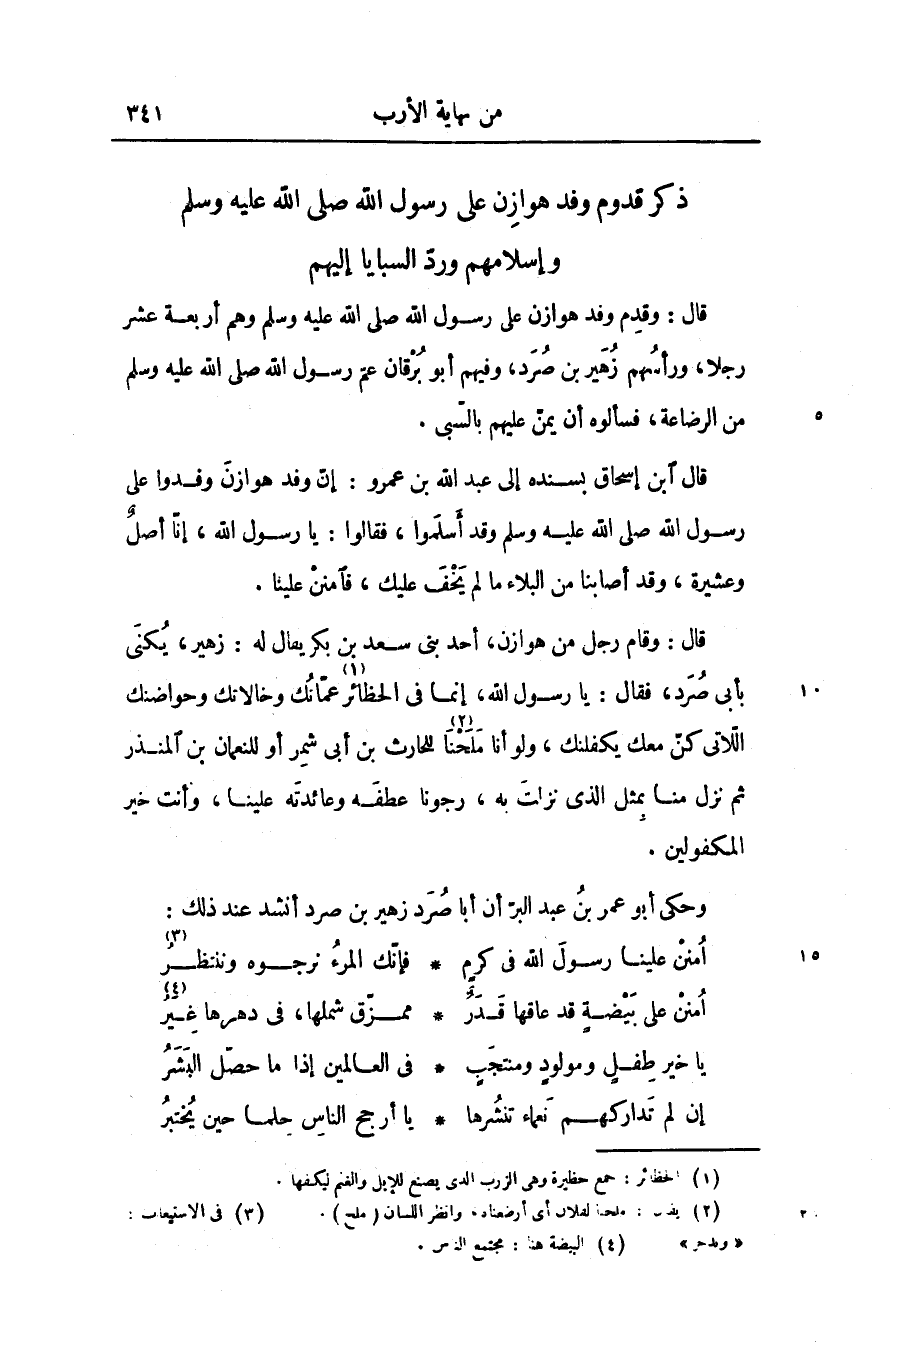 من نهاية الأرب ٣٤١
ذكر قدوم وفد هوازِن على رسول الله صلى الله عليه وسلم
وإسلامهم وردّ السبايا إليهم
قال : وقدِم وفد هوازن على رسول الله صلى الله عليه وسلم وهم أربعة عشر
رجلا، ورأسُهم زُهَير بن صُرَد، وفيهم أبو بُرْقان عمّ رسول الله صلى الله عليه وسلم
من الرضاعة، فسألوه أن يمنّ عليهم بالسّبى . ٥
قال ٱبن إسحاق بسنده إلى عبد الله بن عمرو : إنّ وفد هوازنَ وفدوا على
رسول الله صلى الله عليه وسلم وقد أَسلَموا ، فقالوا : يا رسول الله ، إنّا أصلٌ
وعشيرة ، وقد أصابنا من البلاء ما لم يَخْفَ عليك ، فٱمننْ علينا .
قال : وقام رجل من هوازن، أحد بنى سعد بن بكر يقال له : زهير، يُكنَى
بأبى صُرَد، فقال : يا رسول الله، إنما فى الحظائر (١) عمّاتُك وخالاتك وحواضنك ١٠
اللّاتى كنّ معك يكفلنك ، ولو أنا مَلَحْنَا (٢) للحارث بن أبى شمِر أو للنعمان بن ٱلمنذر
ثم نزل منا بمِثل الذى نزلتَ به ، رجونا عطفَه وعائدتَه علينا ، وأنت خير
المكفولين .
وحكى أبو عمر بنُ عبد البرّ أن أبا صُرَد زهير بن صرد أنشد عند ذلك :
اُمننْ علينا رسولَ الله فى كرمٍ * فإنّك المرءُ نرجوه وننتظرُ (٣) ١٥
اُمننْ على بَيْضةٍ قد عاقها قَدَرٌ * ممزّق شملها، فى دهرها غِيَرُ (٤)
يا خير طِفلٍ ومولودٍ ومنتجَبٍ * فى العالمين إذا ما حصّل البَشَرُ
إن لم تَداركهم نَعماء تنشُرها * يا أرجح الناسِ حِلما حين يُختبرُ
(١) الحظائر : جمع حظيرة وهى الزرب الذى يصنع للإبل والغنم ليكفها .
(٢) يقال : ملحنا لفلان أى أرضعناه . وانظر اللسان ( ملح ) . (٣) فى الاستيعاب : ٢٠
« وندخر » (٤) البيضة هنا : مجتمع الناس .